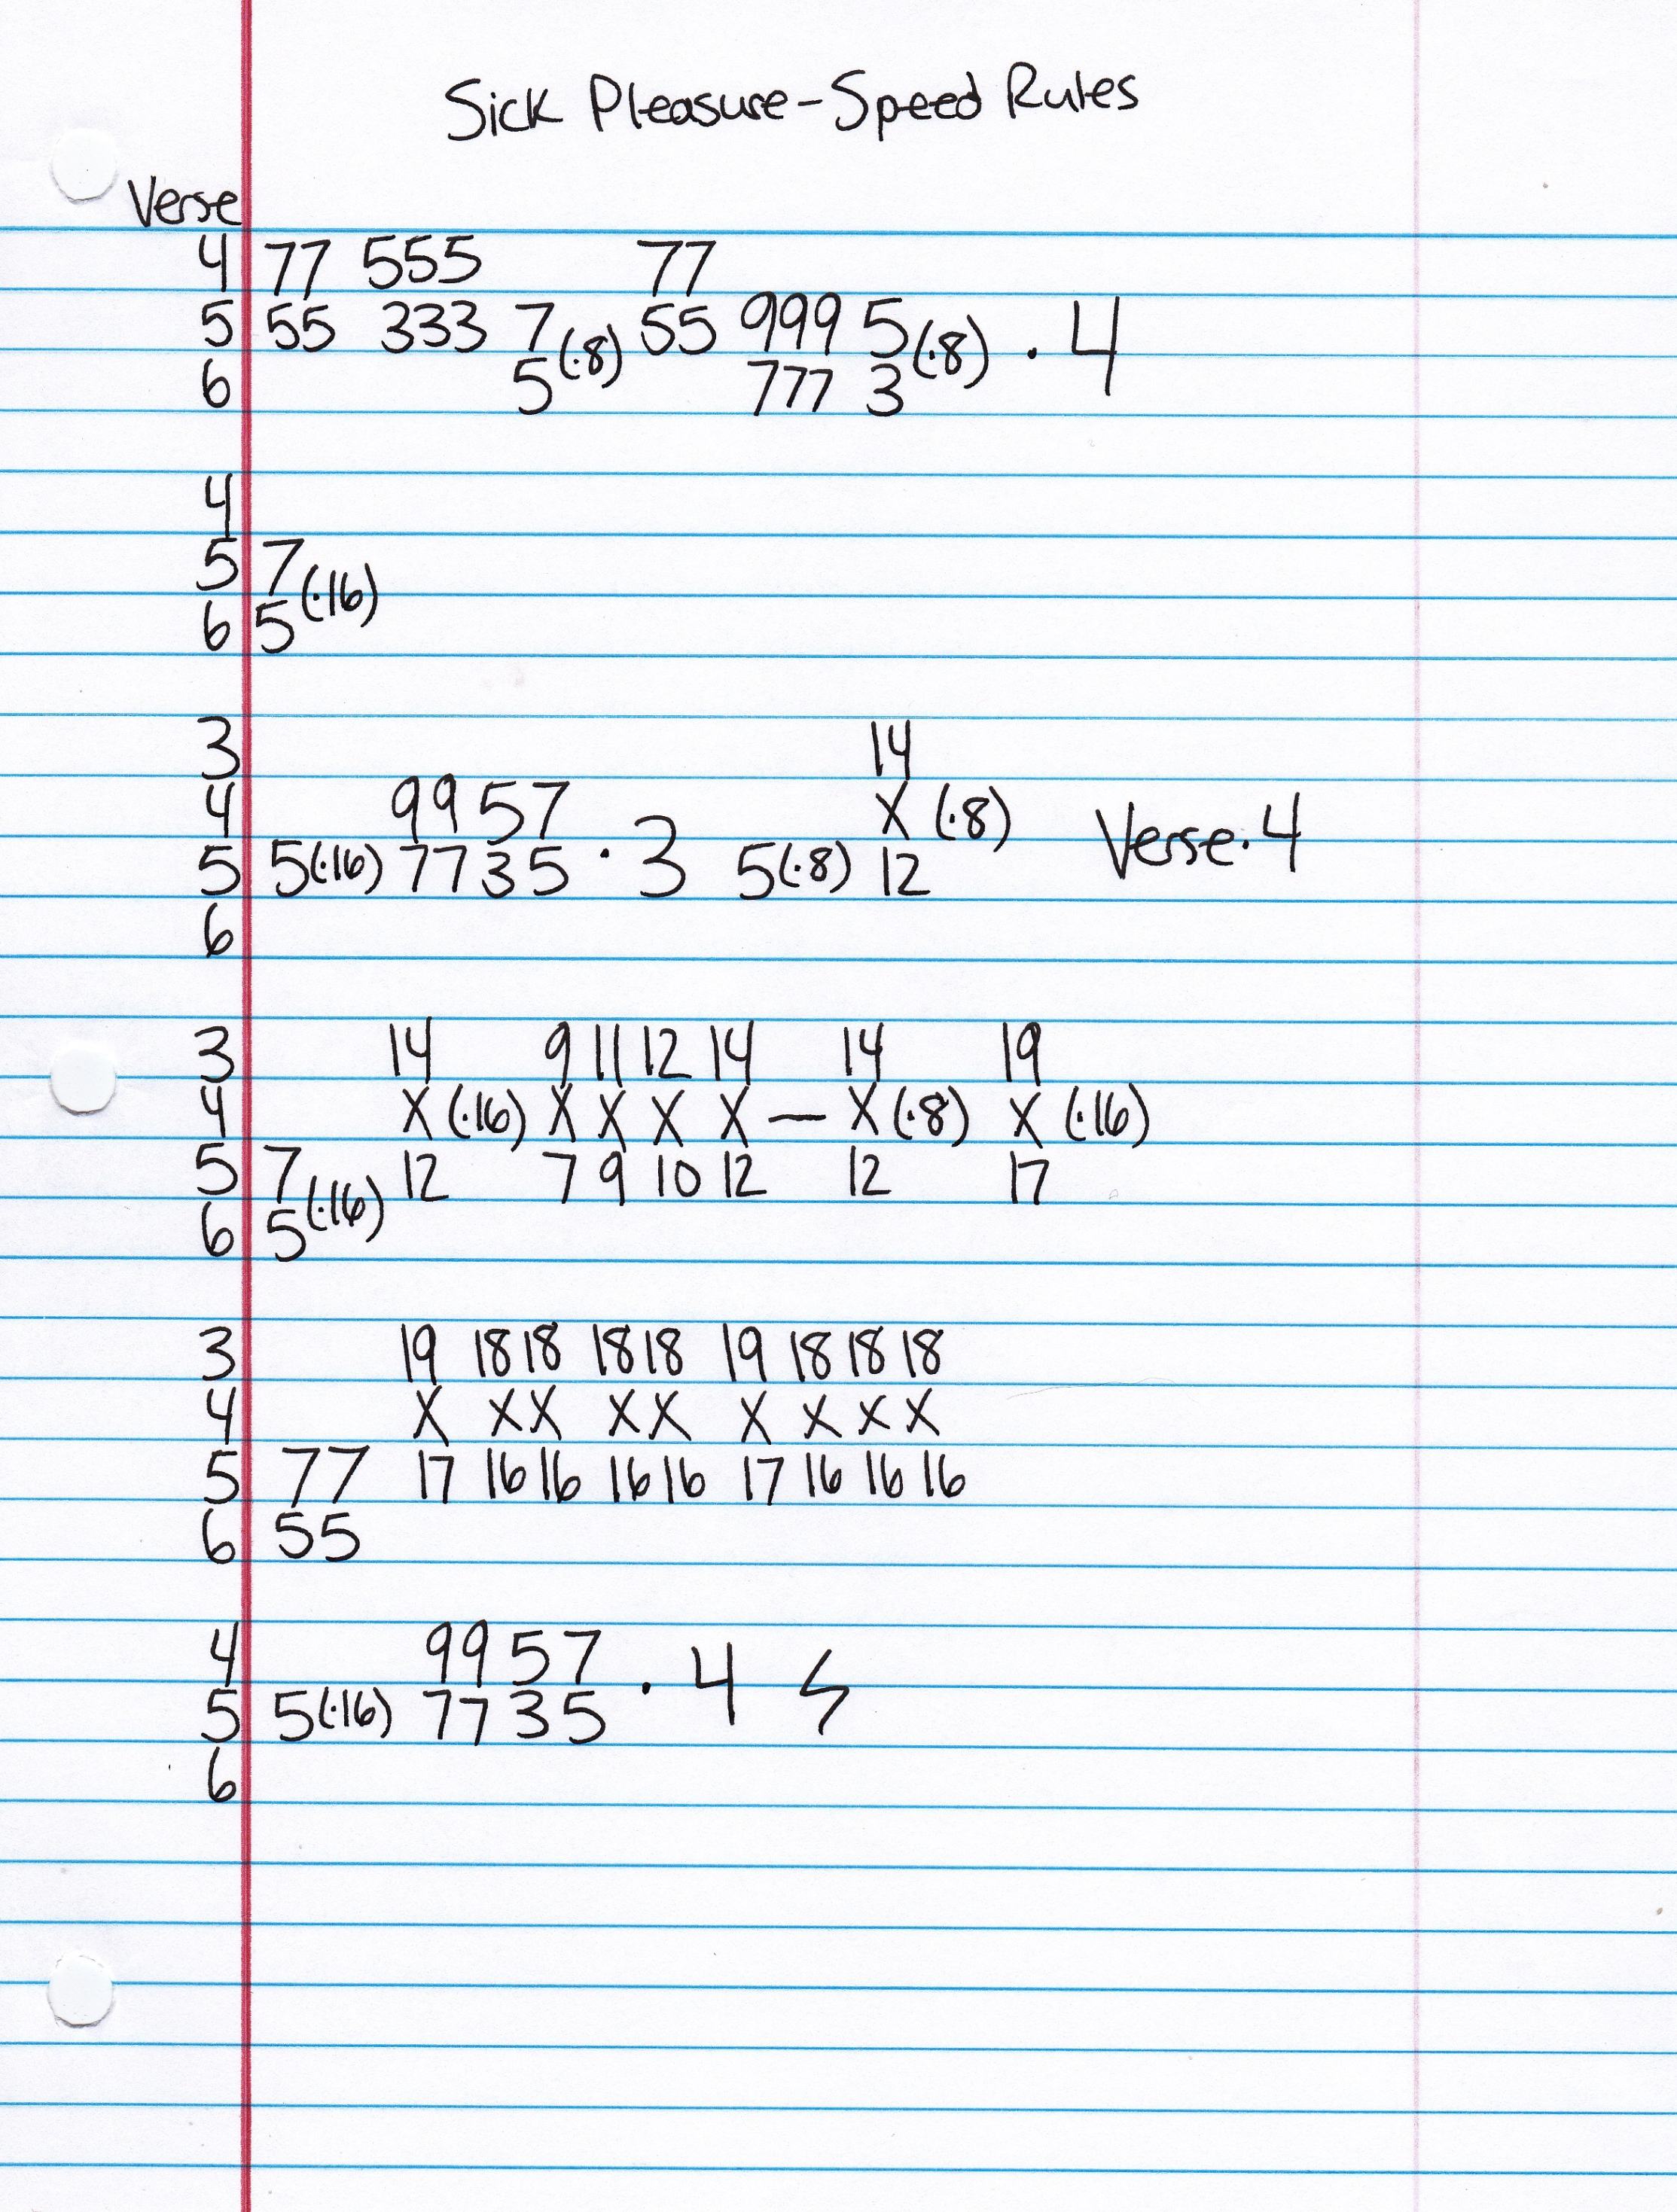 Sick Pleasure-Speed Rules
Verse
4 77 555 77
5 55 333 7(·8) 55 999 5(·8) · 4
6 5 777 3
4
5 7(·16)
6 5
3 14
4 99 57 X (·8) Verse·4
5 5(·16) 7735 · 3 5(·8) 12
6
3 14 9 11 12 14 14 19
4 X (·16) X X X X — X (·8) X (·16)
5 7(·16) 12 7 9 10 12 12 17
6 5
3 19 18 18 18 18 19 18 18 18
4 X X X X X X X X X
5 77 17 16 16 16 16 17 16 16 16
6 55
4 99 57
5 5(·16) 77 35 · 4
6